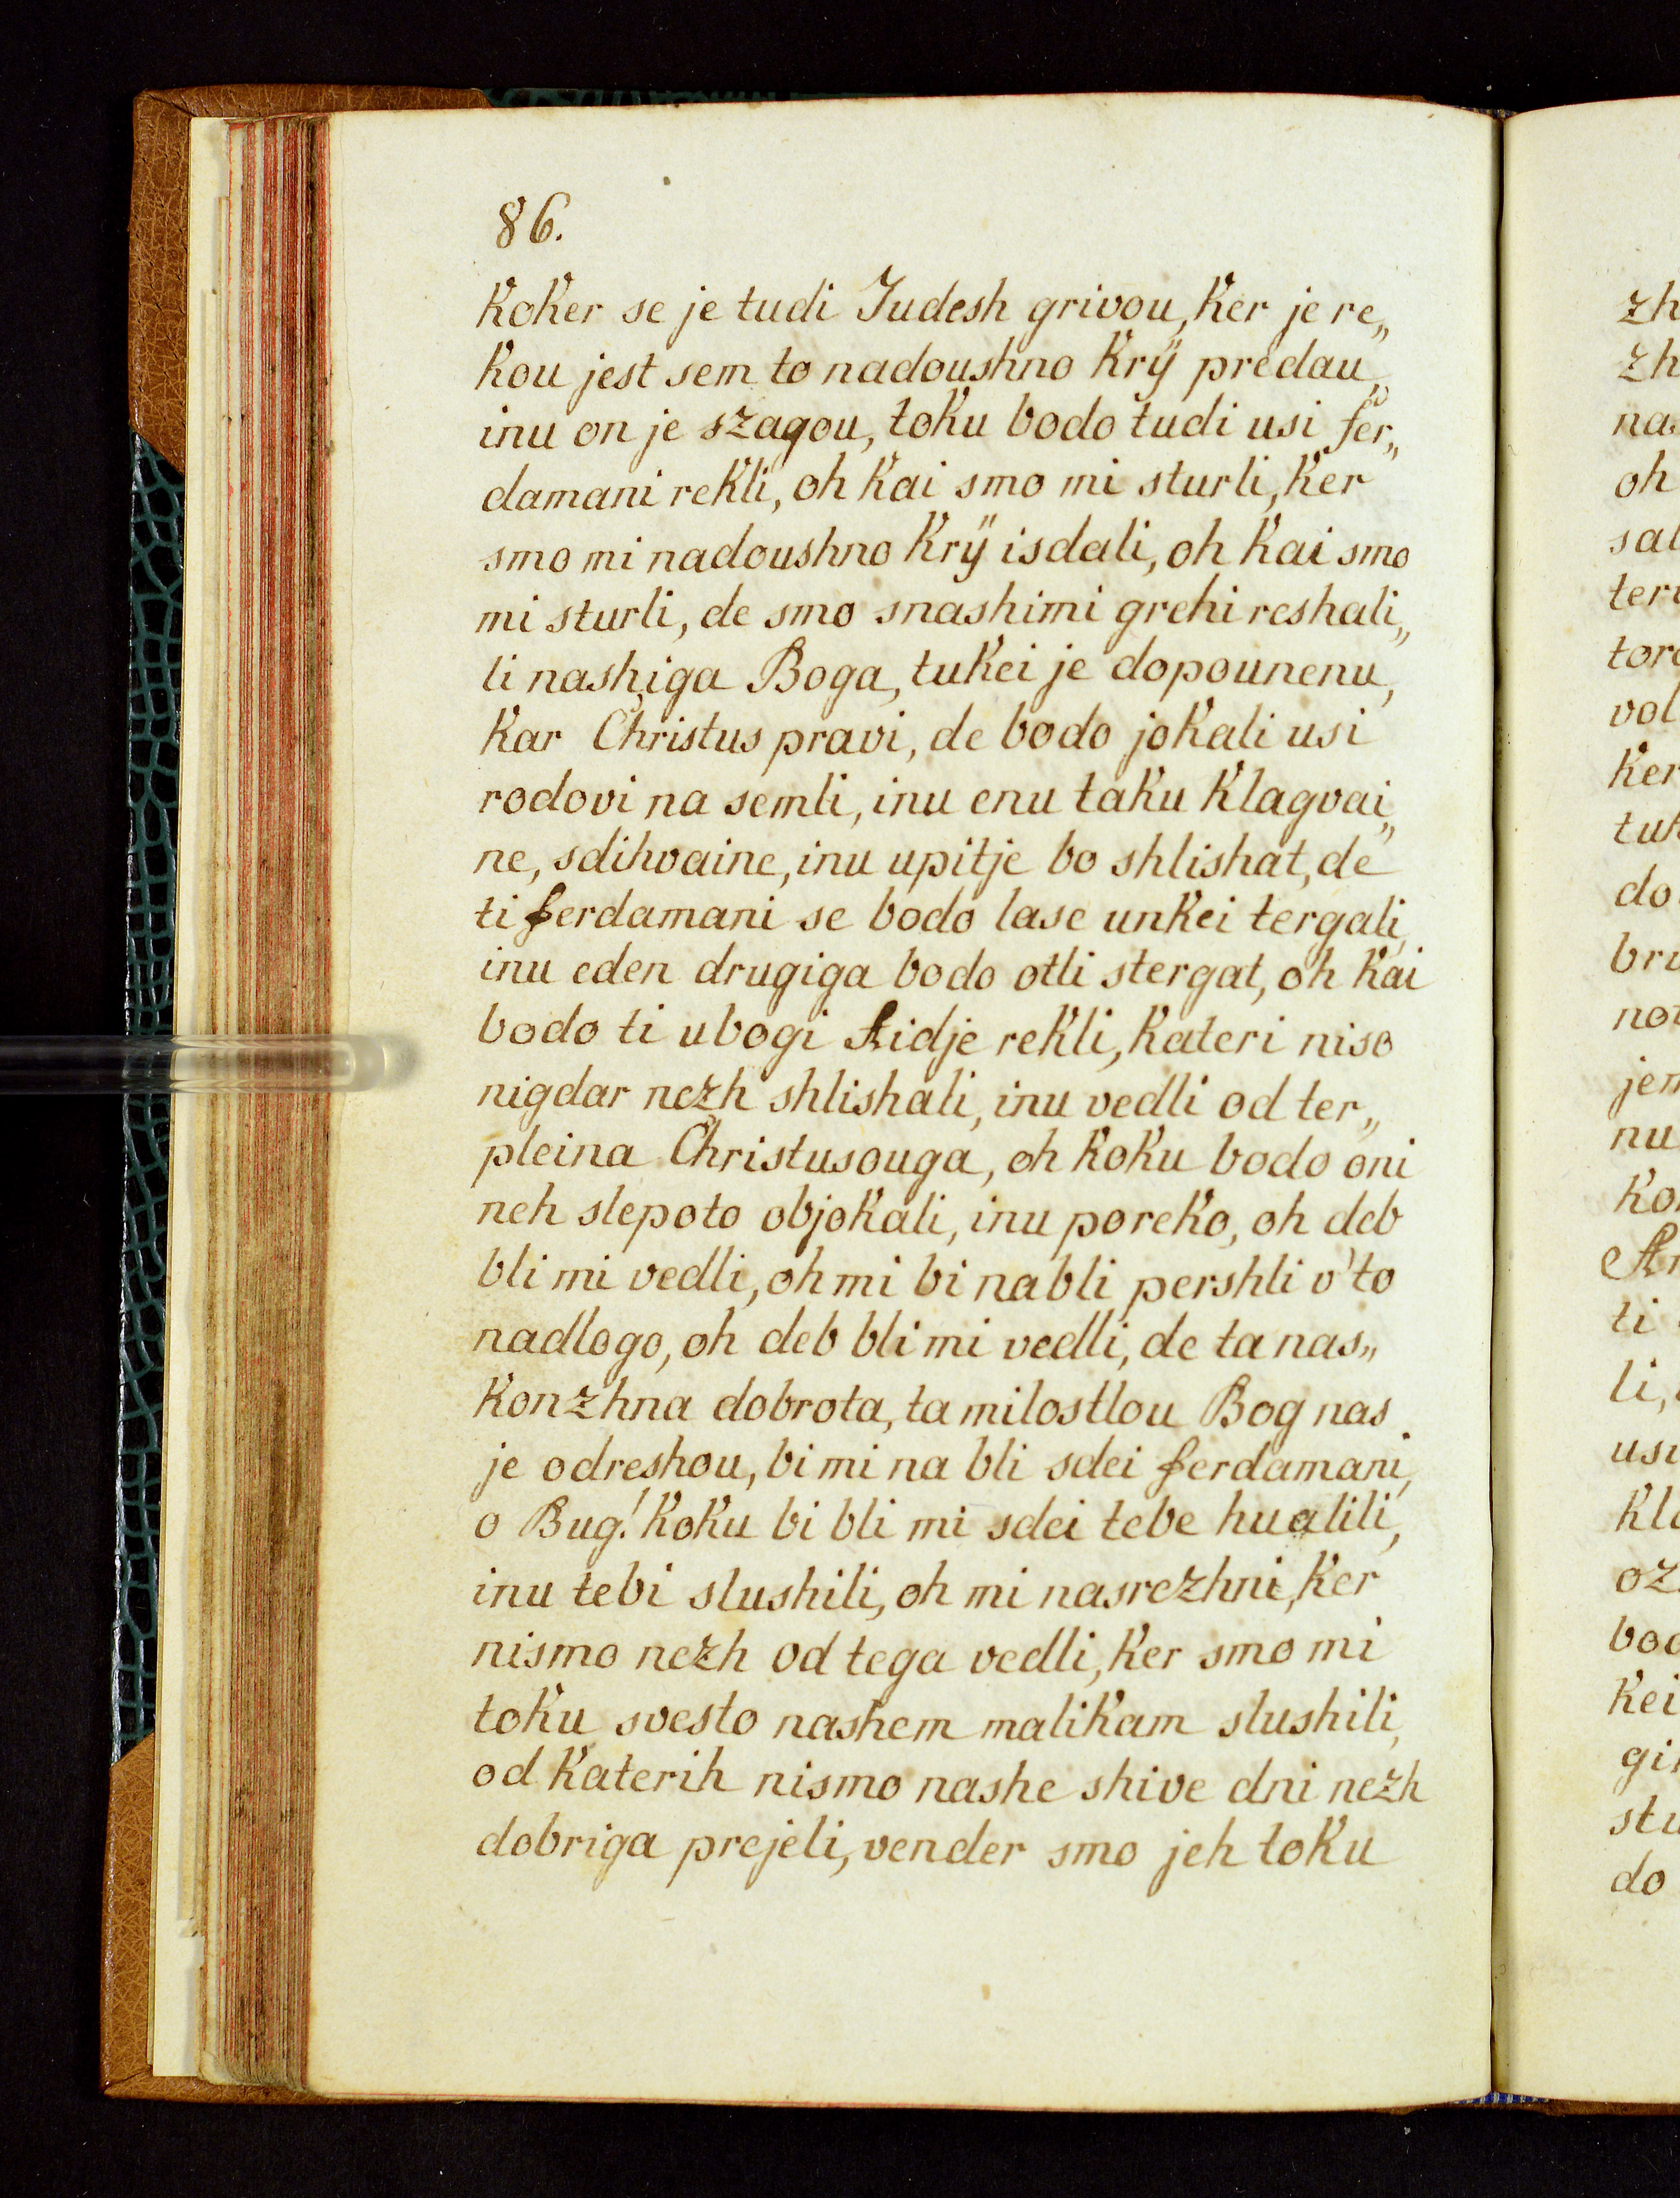 86.
koker se je tudi Judesh grivou, ker je re„
kou jest sem to nadoushno kry̋ predau„
inu on je szagou, toku bodo tudi usi fer„
damani rekli, oh kai smo mi sturli, ker
smo mi nadoushno kry̋ isdali, oh kai smo
mi sturli, de smo snashimi grehi reshali„
li nashiga Boga, tukei je dopounenu,
kar Christus pravi, de bodo jokali usi
rodovi na semli, inu enu taku klagvai„
ne, sdihvaine, inu upitje bo shlishat, de
ti ferdamani se bodo lase unkei tergali,
inu eden drugiga bodo otli stergat, oh kai
bodo ti ubogi Aidje rekli, kateri niso
nigdar nezh shlishali, inu vedli od ter„
pleina Christusouga, oh koku bodo oni
neh slepoto objokali, inu poreko, oh deb
bli mi vedli, oh mi bi nabli pershli v'to
nadlogo, oh deb bli mi vedli, de ta nas„
konzhna dobrota, ta milostlou Bog nas
je odreshou, bi mi na bli sdei ferdamani,
o Bug! koku bi bli mi sdei tebe hualili,
inu tebi slushili, oh mi nasrezhni, ker
nismo nezh od tega vedli, ker smo mi
toku svesto nashem malikam slushili,
od katerih nismo nashe shive dni nezh
dobriga prejeli, vender smo jeh toku